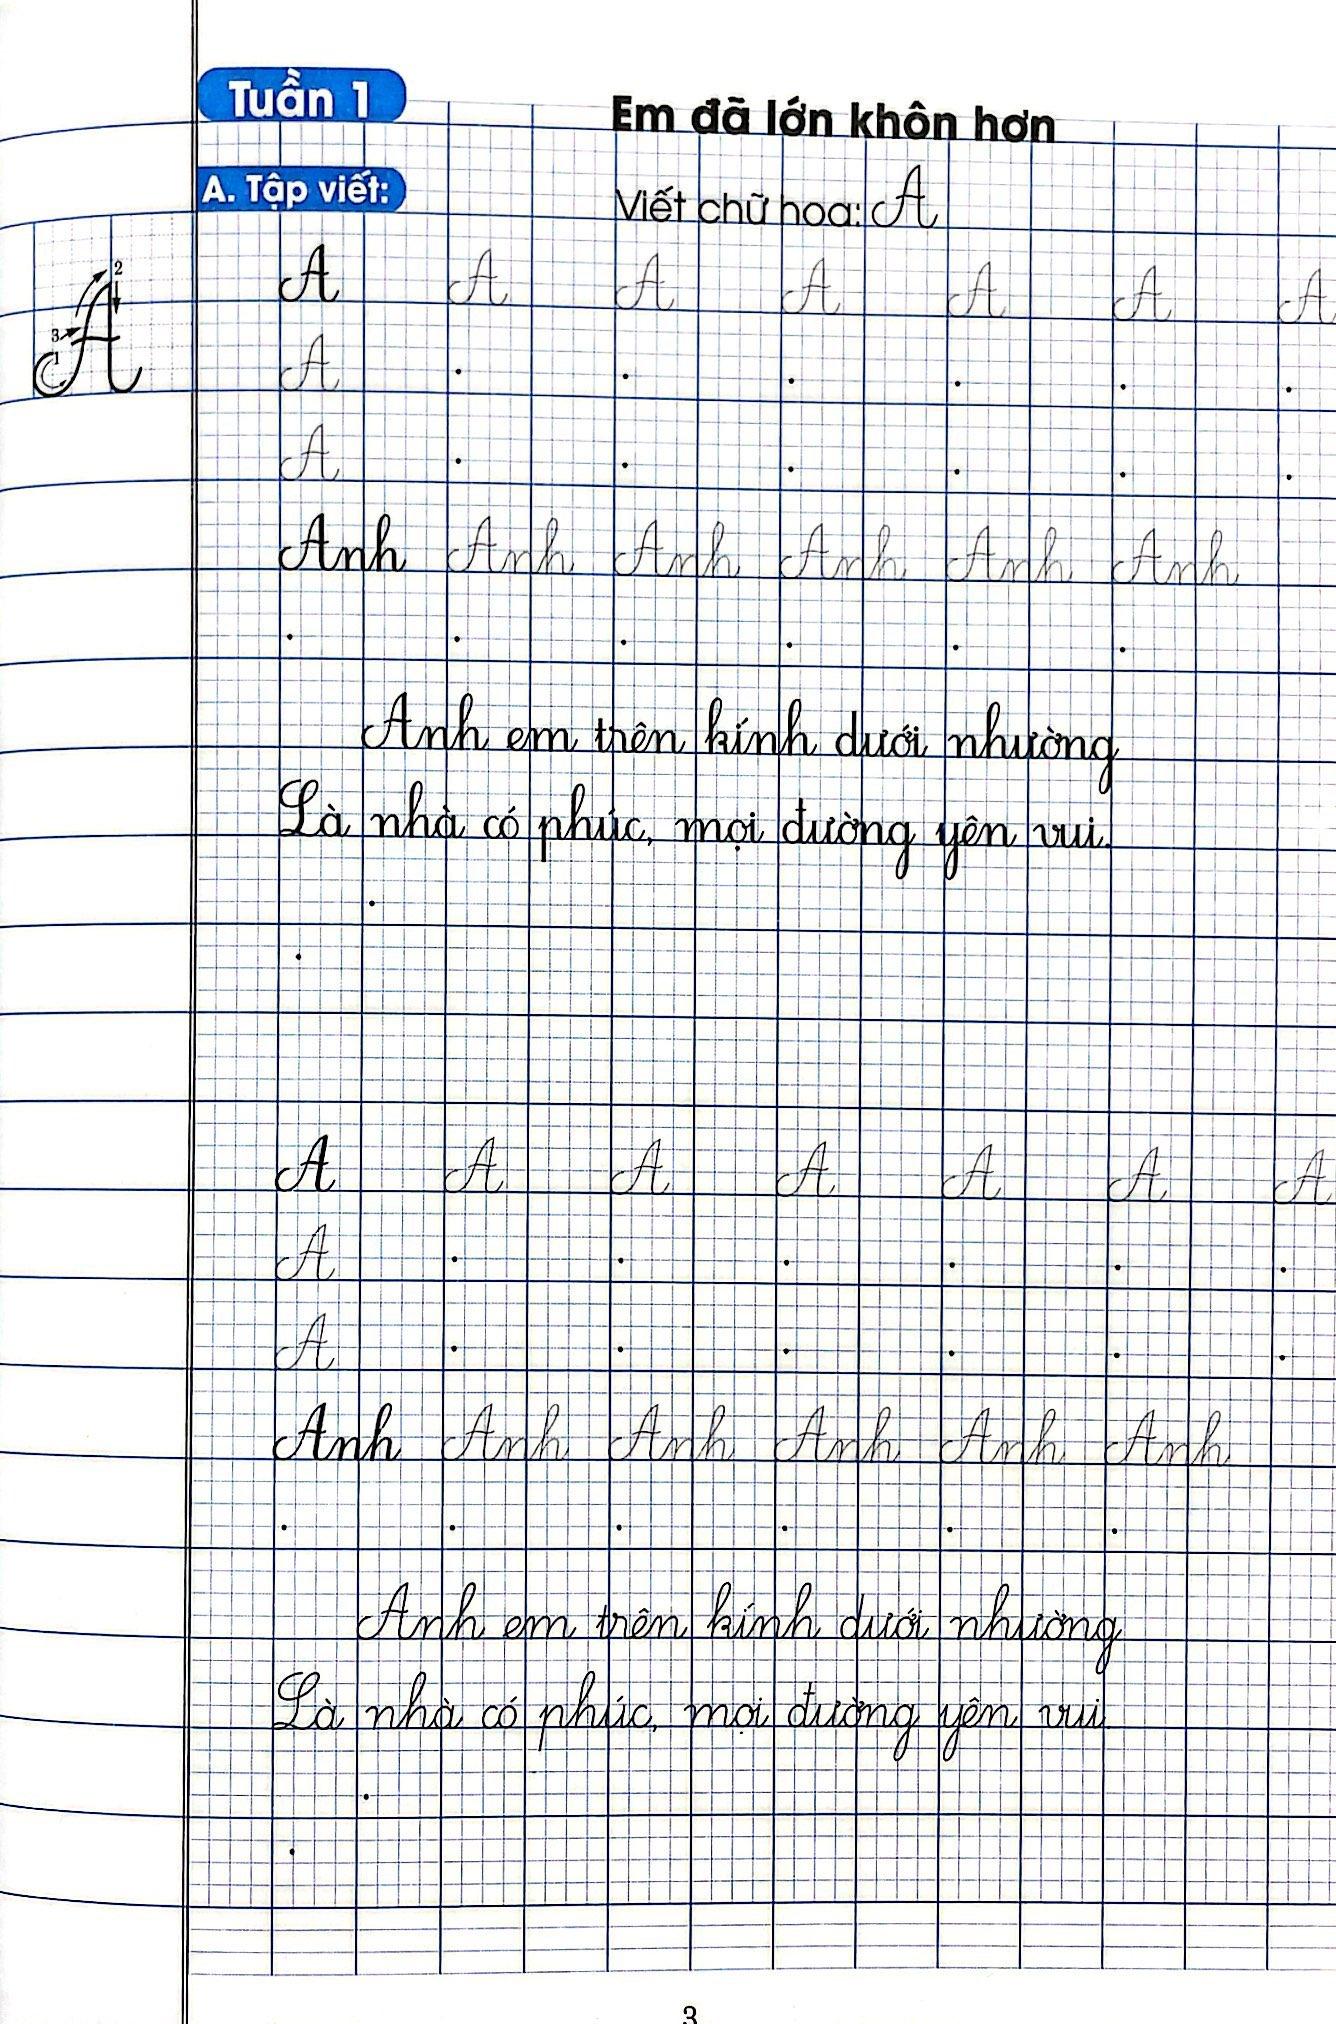 Tuần 1
Em đã lớn khôn hơn
A. Tập viết:
Viết chữ hoa: A
A A A A A A A
1 2 3
A
A
Anh Anh Anh Anh Anh Anh
Anh em trên kính dưới nhường
Là nhà có phúc, mọi đường yên vui.
A A A A A A A
A
A
Anh Anh Anh Anh Anh Anh
Anh em trên kính dưới nhường
Là nhà có phúc, mọi đường yên vui.
3